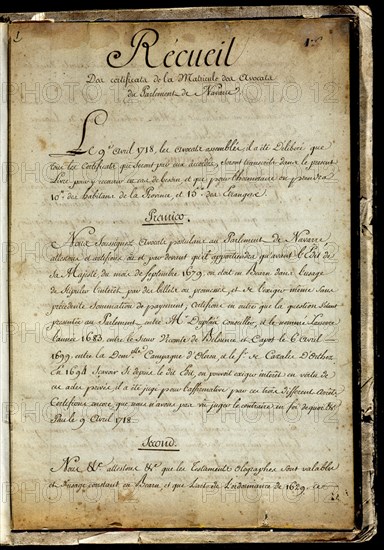 1
Récueil
Des certificats de la Matricule des Avocats
du Parlement de Navarre
Le 9e Avril 1718, les Avocats assemblés, il a été Délibéré que
tous les Certificats qui seront par eux accordés, seront transcrits dans le présent
Livre pour y recourir en cas de besoin et que pour l'honoraire on prendra
10s des habitans de la Province, et 15s des Etrangers.
Premier.
Nous Soussignez Avocats postulans au Parlement de Navarre,
attestons et certifions à tous qu'il appartiendra qu'avant l'Edit de
Sa Majesté du mois de Septembre 1679, on étoit en Bearn dans l'usage
de stipuler l'interêt, par des billets ou promesses, et de l'exiger même sans
précédente Sommation de payement, Certifions en outre que la question s'étant
presentée au Parlement, entre Me Duplàa Conseiller, et le nommé
l'année 1683, entre le Sieur et Capot le 6 Avril
1699, entre la Demlle Campagne d'Oloron, et le Sr de Casalis d'Orthez
En 1694 Scavoir Si depuis le dit Edit, on pouvoit exiger interêt en vertu de
ces actes privés, il a été jugé pour l'affirmative par ces trois différents Arrêts
Certifions encore, que nous n'avons pas vû juger le contraire en foi de quoi &c
Pau le 9 Avril 1718.
Second.
Nous &c. attestons &c. que les Testaments olographes sont valables
et d'usage constant en Bearn, et que l'article de l'ordonnance de 1629, ce